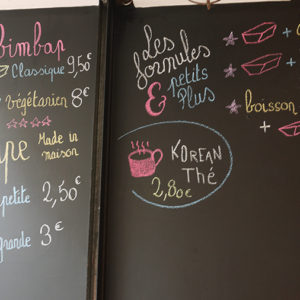 bimbap
Classique 9,50€
végétarien 8€
Made in
maison
petite 2,50€
grande 3€
Les
formules
& petits
Plus
+
+
boisson
+
KOREAN
Thé
2,80€